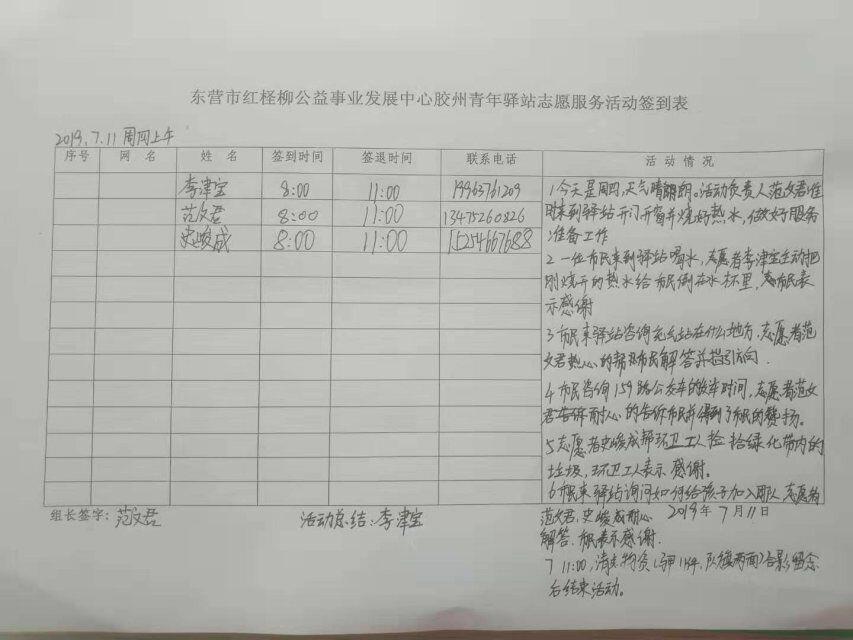 东营市红柽柳公益事业发展中心胶州青年驿站志愿服务活动签到表
2019.7.11 周四上午
序号 网名 姓名 签到时间 签退时间 联系电话 活动情况
李津宝 8:00 11:00 19963761209
范文君 8:00 11:00 13475260826
史峻成 8:00 11:00 15254667688
1今天是周四,天气晴朗。活动负责人范文君准
时来到驿站开门开窗并烧好热水,做好服务
准备工作
2 一位市民来到驿站喝水,志愿者李津宝主动把
刚烧开的热水给市民倒在水杯里,市民表
示感谢
3 市民来驿站咨询充气站在什么地方,志愿者范
文君热心的帮市民解答并指引方向.
4 市民咨询159路公交车的发车时间,志愿者范文
君告诉耐心的告诉市民并得到了市民的赞扬。
5 志愿者史峻成帮环卫工人捡拾绿化带内的
垃圾,环卫工人表示感谢。
6 市民来驿站询问如何给孩子加入团队 志愿者
范文君,史峻成耐心
解答.市民表示感谢.
7 11:00,清点物资(马甲11件,队旗两面)合影留念
后结束活动。
组长签字:范文君 活动总结:李津宝 2019年7月11日